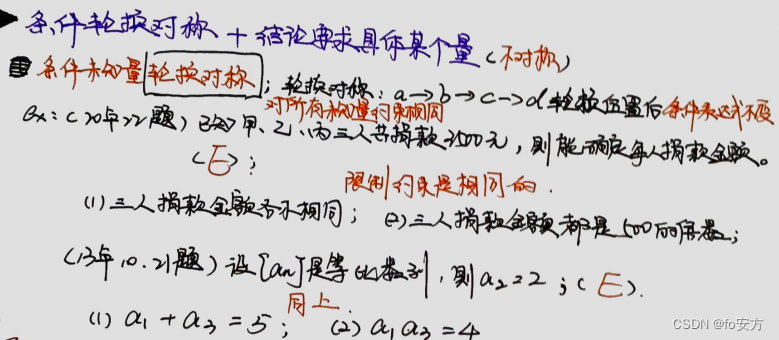 条件轮换对称 + 结论要求具体某个量(不对称)
条件未知量轮换对称；轮换对称：a→b→c→d轮换位置后条件表达式不变
对所有未知量约束相同
Ex：(20年22题) 已知甲、乙、丙三人共捐款3500元，则能确定每人捐款金额。
(E)；
限制约束是相同的.
(1)三人捐款金额各不相同； (2)三人捐款金额都是500的倍数；
(13年10.21题) 设{an}是等比数列，则a2=2；(E).
同上.
(1) a1+a3=5； (2) a1a3=4
CSDN @fo安方